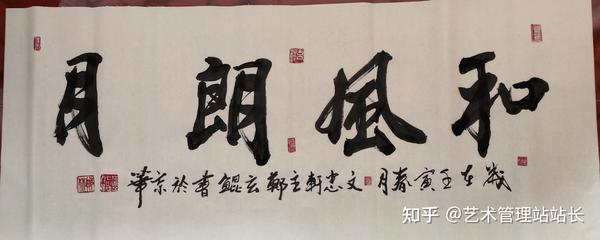 和風朗月
歲在壬寅春月文忠軒主鄭玄鯤書於京華
知乎 @艺术管理站站长